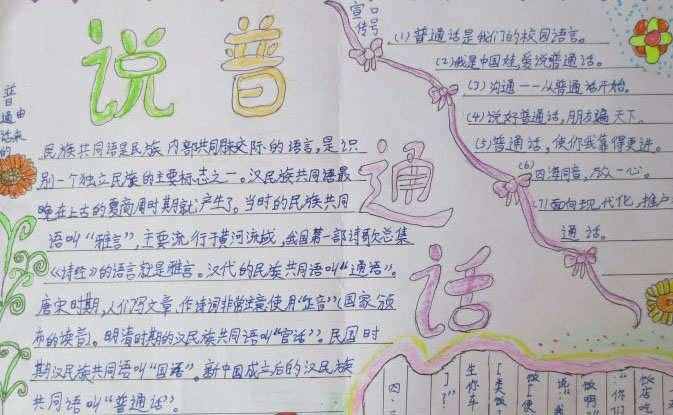 说普通话
普通话的由来
民族共同语是民族内部共同用来交际的语言,是识
别一个独立民族的主要标志之一。汉民族共同语最
晚在上古的夏商周时期就产生了。当时的民族共同
语叫“雅言”,主要流行于黄河流域,我国第一部诗歌总集
《诗经》的语言就是雅言。汉代的民族共同语叫“通语”。
唐宋时期,人们写文章、作诗词非常注意使用“正音”(国家颁
布的读音)。明清时期的汉民族共同语叫“官话”。民国时
期汉民族共同语叫“国语”。新中国成立后的汉民族
共同语叫“普通话”。
宣传口号
(1)普通话是我们的校园语言。
(2)我是中国娃,爱说普通话。
(3)沟通——从普通话开始。
(4)说好普通话,朋友遍天下。
(5)普通话,使你我靠得更近。
(6)四海同音,万众一心。
(7)面向现代化,推广
普通话。
饭店吃
“你
饭啊
说:我
饭[使
[类饭
生你车
了?”
四·